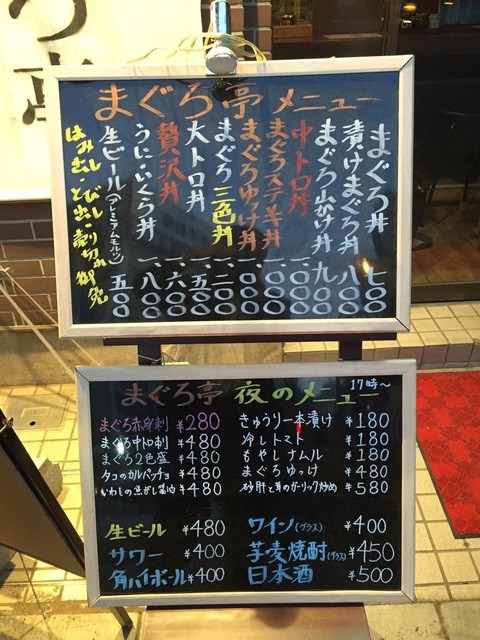 まぐろ亭 メニュー
まぐろ丼 七〇〇
漬けまぐろ丼 八〇〇
まぐろ山かけ丼 九〇〇
中トロ丼 一、〇〇〇
まぐろステーキ丼 一、〇〇〇
まぐろゆっけ丼 一、〇〇〇
まぐろ三色丼 一、二〇〇
大トロ丼 一、五〇〇
贅沢丼 一、六〇〇
うに・いくら丼 一、八〇〇
生ビール(プレミアムモルツ) 五〇〇
はみ出し・とび出し・売り切れ御免
まぐろ亭 夜のメニュー 17時〜
まぐろ赤身刺 ¥280
まぐろ中トロ刺 ¥480
まぐろ2色盛 ¥480
タコのカルパッチョ ¥480
いわしの焦がし醤油 ¥480
きゅうり一本漬け ¥180
冷しトマト ¥180
もやしナムル ¥180
まぐろゆっけ ¥480
砂肝と芽のガーリック炒め ¥580
生ビール ¥480
サワー ¥400
角ハイボール ¥400
ワイン(グラス) ¥400
芋麦焼酎(グラス) ¥450
日本酒 ¥500